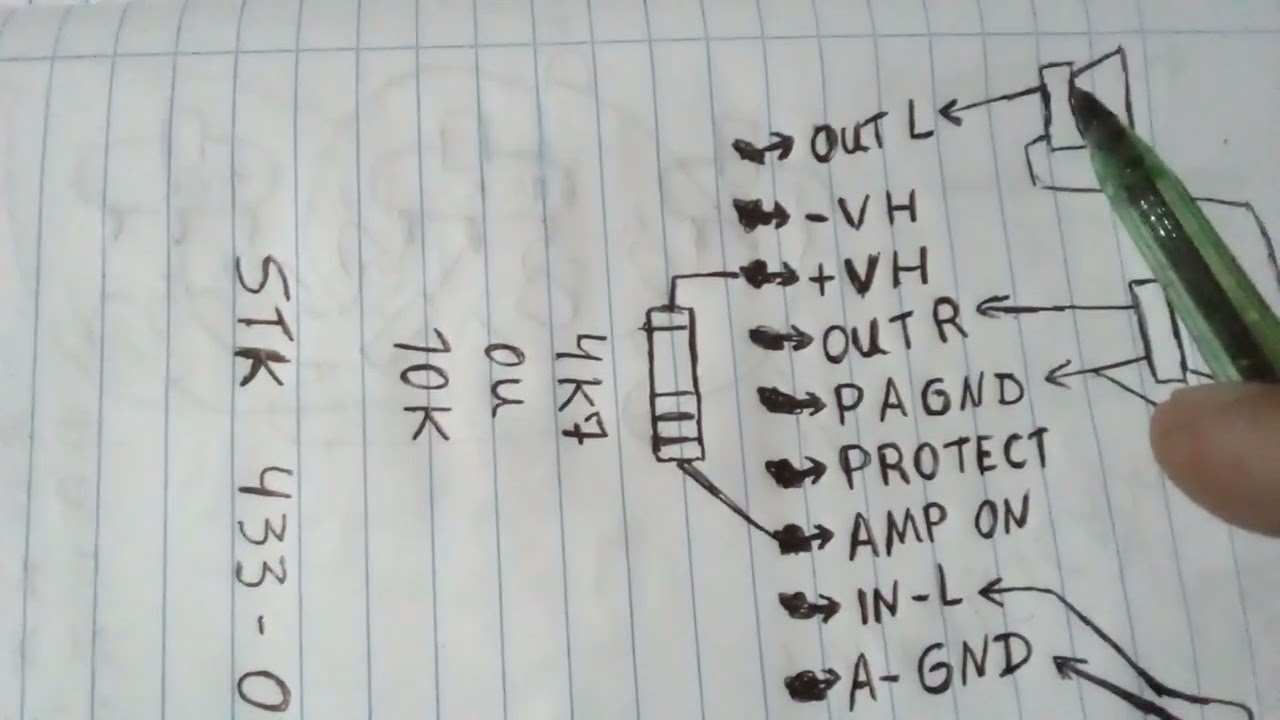 OUT L
-VH
+VH
OUT R
PAGND
PROTECT
AMP ON
IN-L
A-GND
4K7
ou
10K
STK 433-0